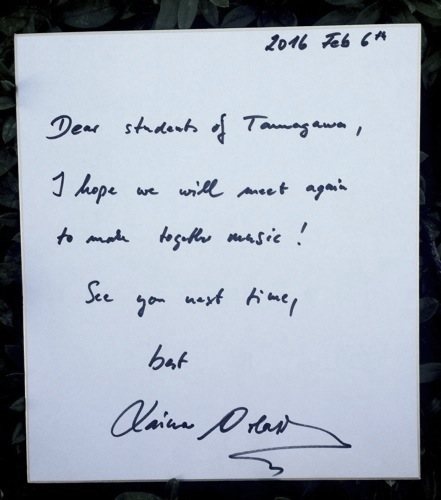 2016 Feb 6th
Dear students of Tamagawa,
I hope we will meet again
to make together music!
See you next time,
best